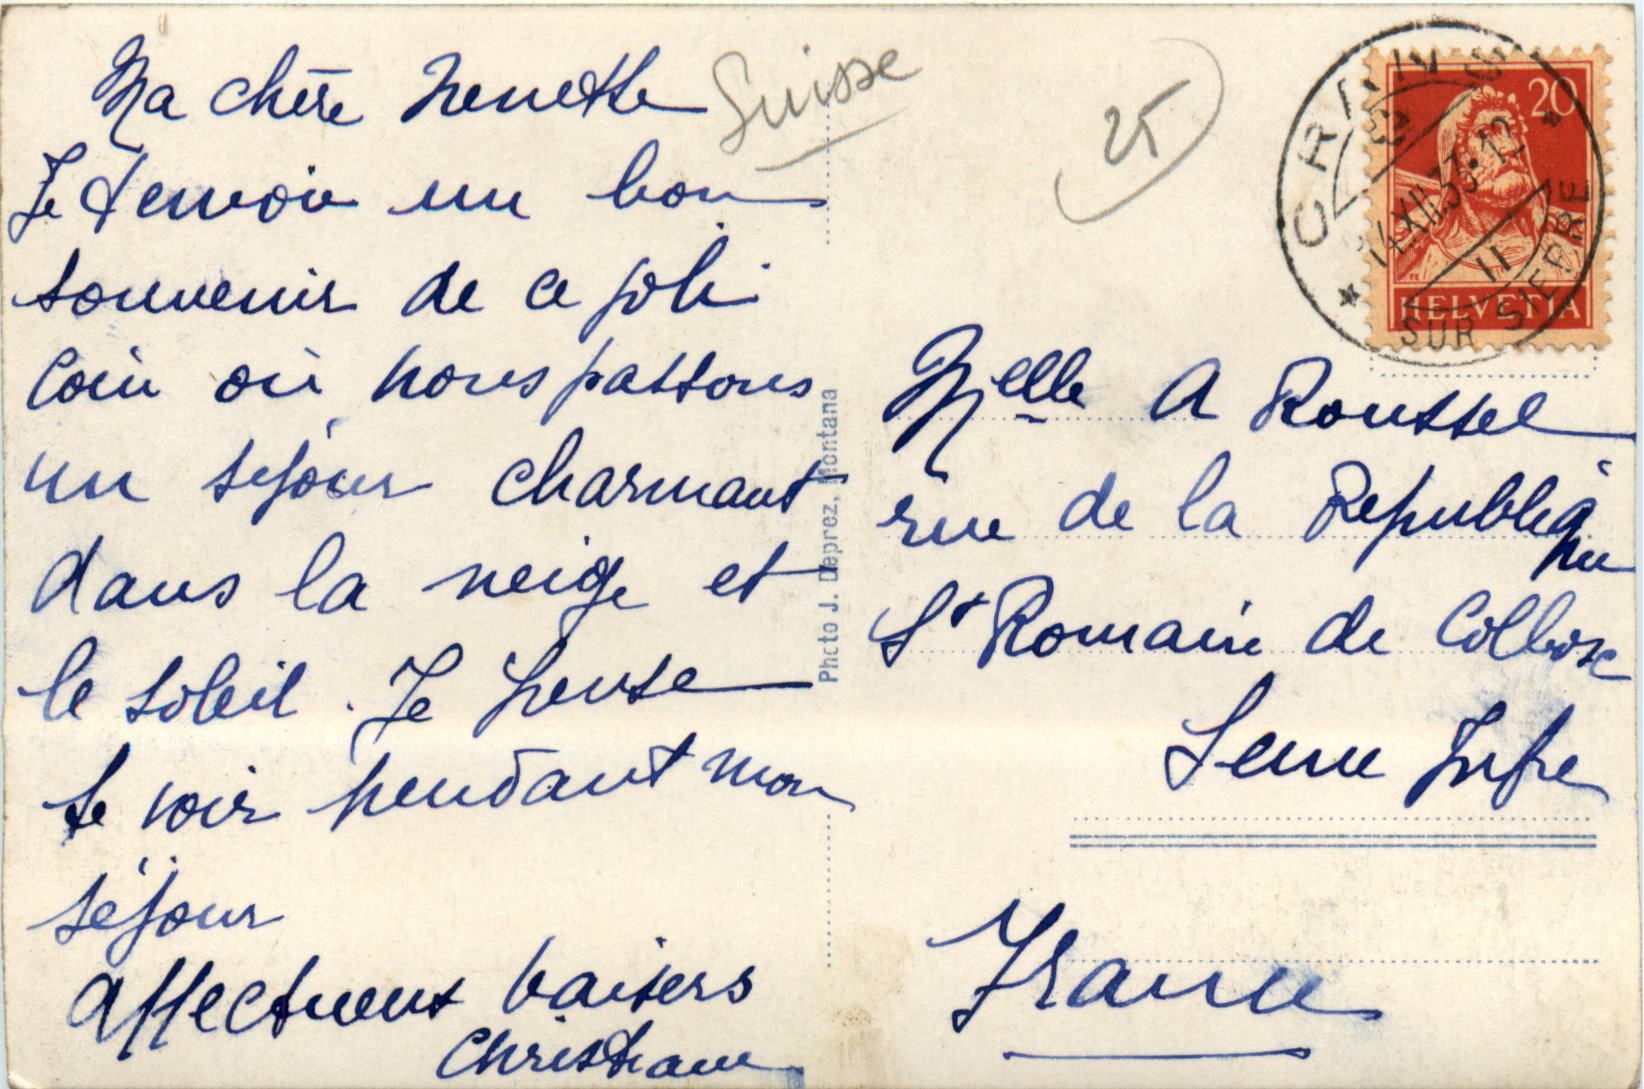 Ma chère Nenette
Je t'envoie un bon
souvenir de ce joli
coin où nous passons
un séjour charmant
dans la neige et
le soleil. Je pense
te voir pendant mon
séjour
affectueux baisers
Christiane
Suisse
25
Photo J. Deprez, Montana
CRANS
SUR SIERRE
XII.33.12
II
20
HELVETIA
Melle A Roussel
rue de la Republique
St Romain de Colbosc
Seine Infre
France